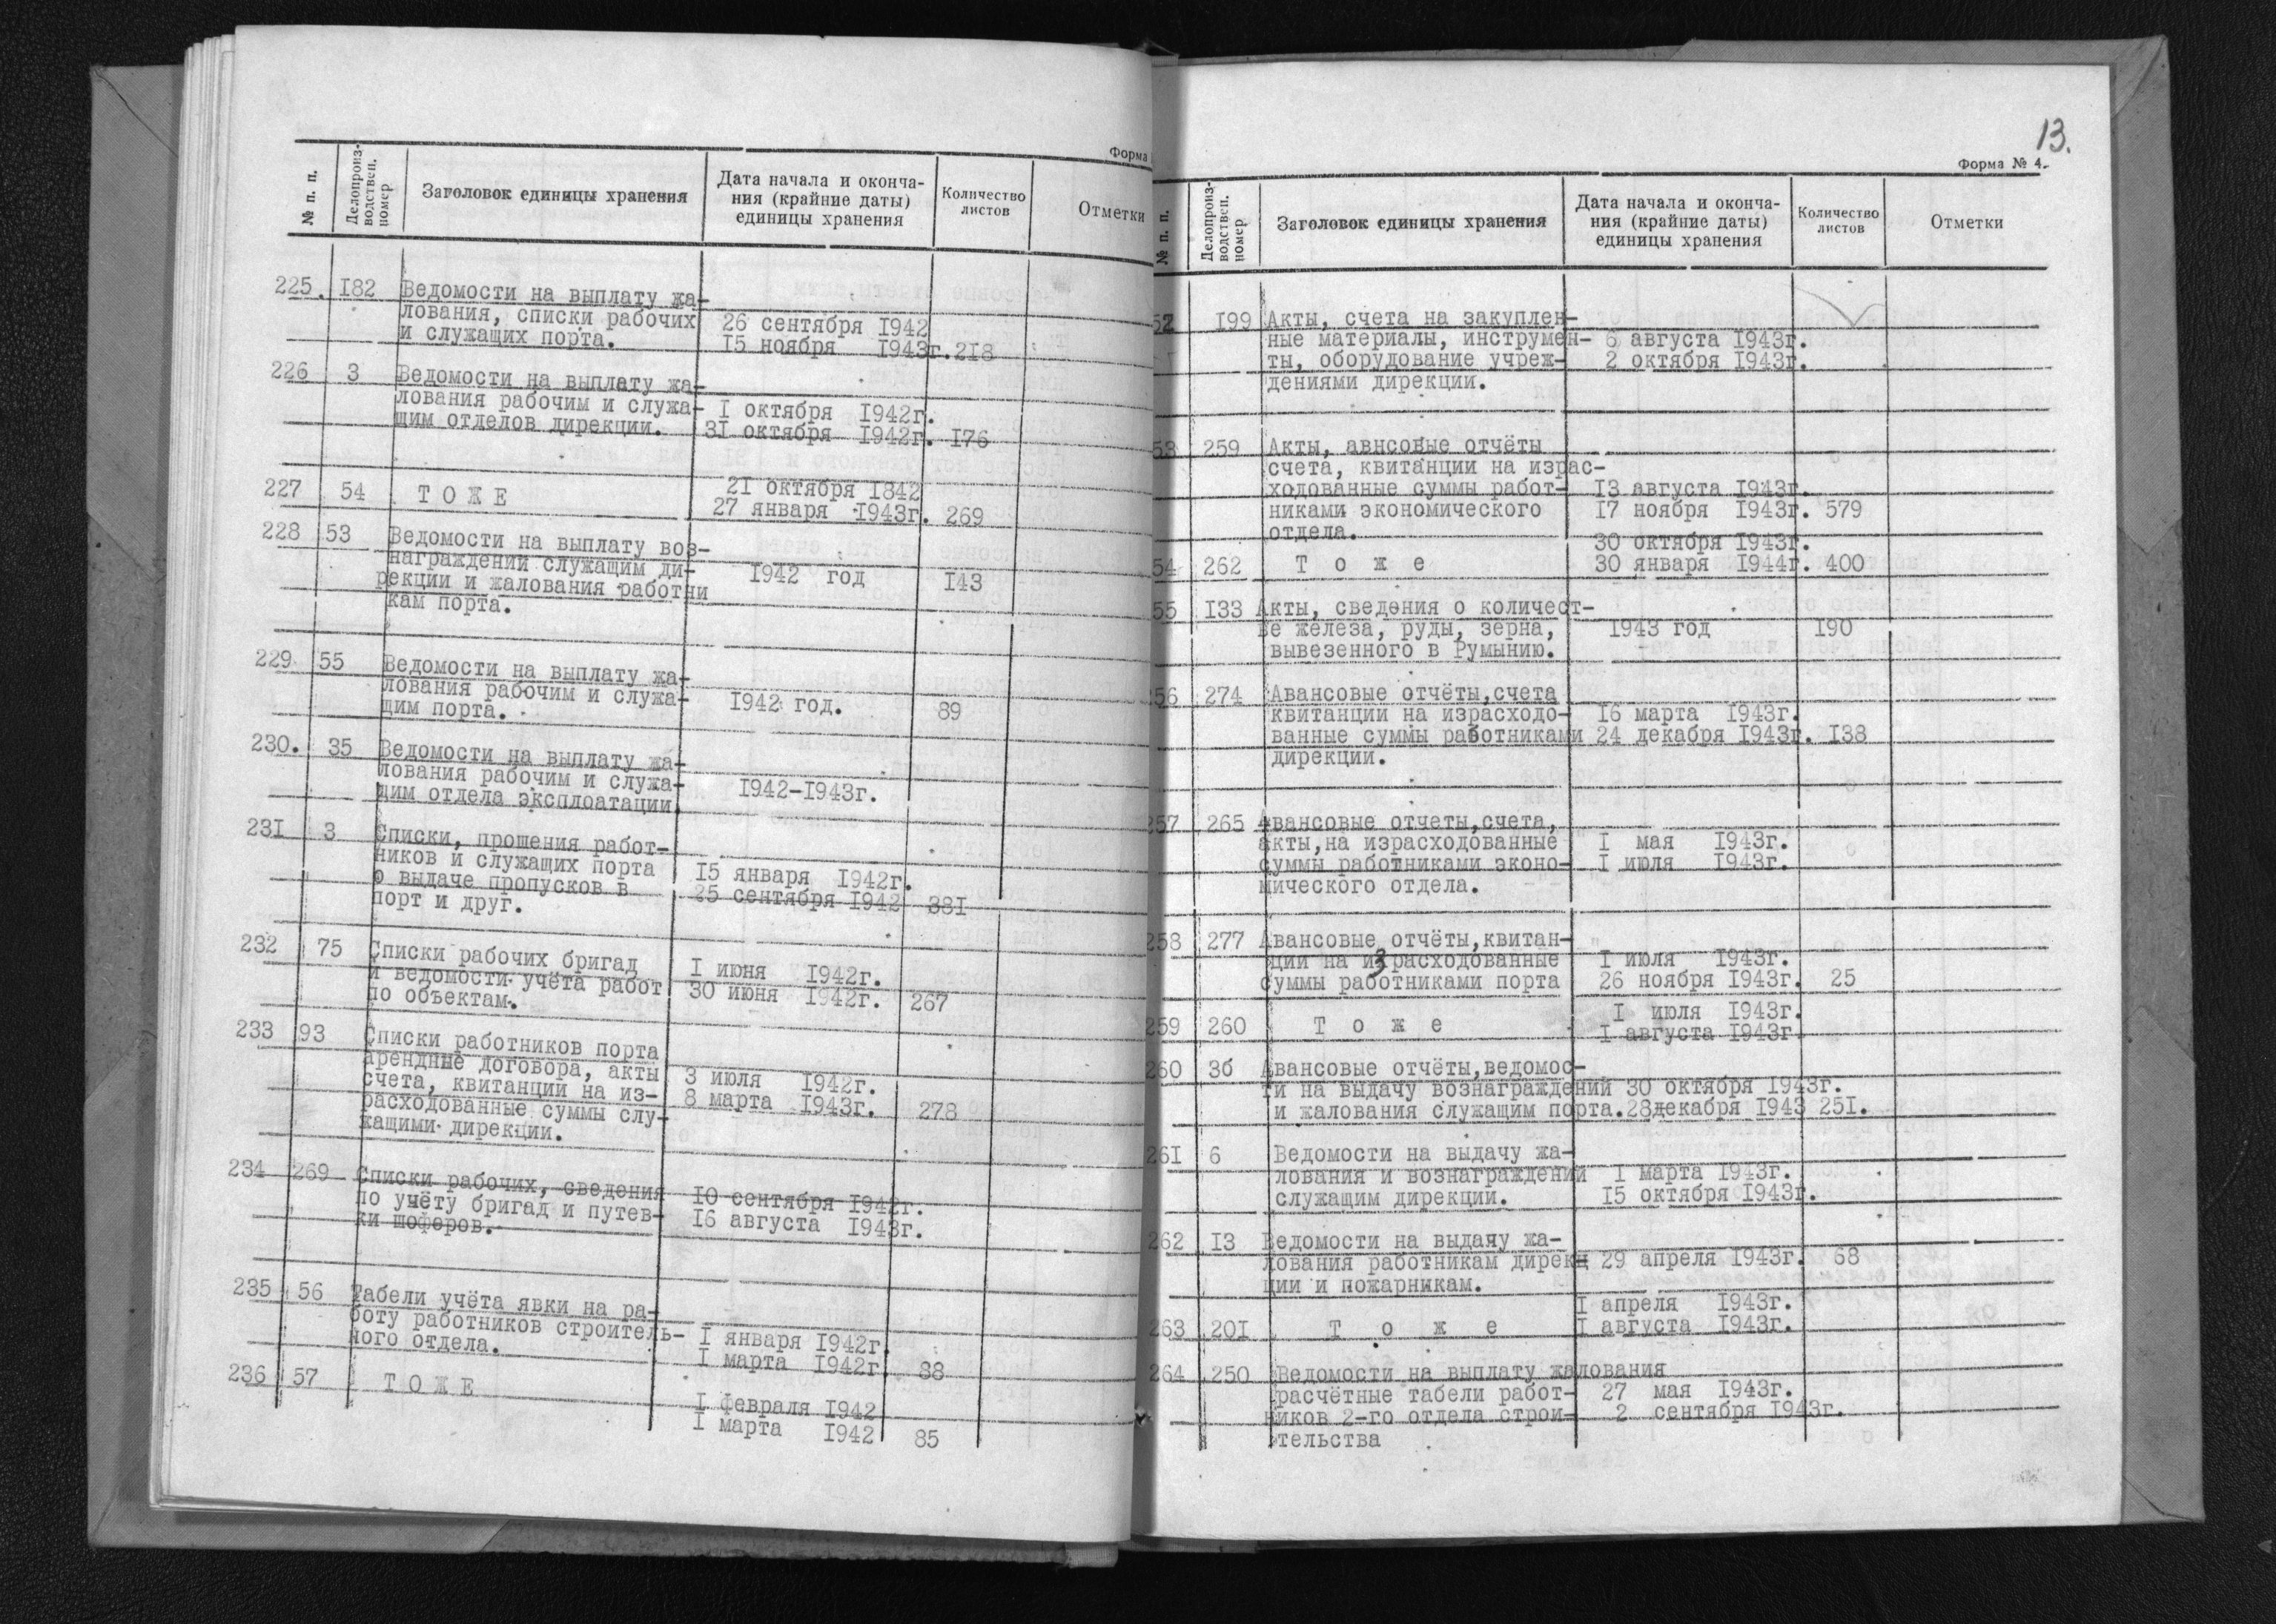 Форма
№ п. п.
Делопроиз-
водствен.
номер
Заголовок единицы хранения
Дата начала и оконча-
ния (крайние даты)
единицы хранения
Количество
листов
Отметки
225. I82 Ведомости на выплату жа-
лования, списки рабочих 26 сентября I942
и служащих порта. I5 ноября I943г. 2I8
226 3 Ведомости на выплату жа-
лования рабочим и служа- I октября I942г.
щим отделов дирекции. 3I октября I942г. I76
2I октября I842
227 54 Т О Ж Е 27 января I943г. 269
228 53 Ведомости на выплату воз-
награждений служащим ди-
рекции и жалования работни I942 год I43
кам порта.
229 55 Ведомости на выплату жа-
лования рабочим и служа-
щим порта. I942 год. 89
230. 35 Ведомости на выплату жа-
лования рабочим и служа- I942-I943г.
щим отдела эксплоатации.
23I 3 Списки, прошения работ-
ников и служащих порта I5 января I942г.
о выдаче пропусков в 25 сентября I942 38I
порт и друг.
232 75 Списки рабочих бригад I июня I942г.
и ведомости учёта работ 30 июня I942г. 267
по объектам.
233 93 Списки работников порта
арендные договора, акты 3 июля I942г.
счета, квитанций на из- 8 марта I943г. 278
расходованные суммы слу-
жащими дирекции.
234 269 Списки рабочих, сведения I0 сентября I942г.
по учёту бригад и путев- I6 августа I943г.
ки шоферов.
235 56 Табели учёта явки на ра-
боту работников строитель- I января I942г.
ного отдела. I марта I942г 88
236 57 Т О Ж Е I февраля I942
I марта I942 85
13.
Форма № 4.
№ п. п.
Делопроиз-
водствен.
номер
Заголовок единицы хранения
Дата начала и оконча-
ния (крайние даты)
единицы хранения
Количество
листов
Отметки
52 I99 Акты, счета на закуплен-
ные материалы, инструмен- 6 августа I943г.
ты, оборудование учреж- 2 октября I943г.
дениями дирекции.
53 259 Акты, авнсовые отчёты
счета, квитанции на израс-
ходованные суммы работ- I3 августа I943г.
никами экономического I7 ноября I943г. 579
отдела.
30 октября I943г.
54 262 Т о ж е 30 января I944г. 400
55 I33 Акты, сведения о количест-
ве железа, руды, зерна, I943 год I90
вывезенного в Румынию.
56 274 Авансовые отчёты,счета
квитанции на израсходо- I6 марта I943г.
ванные суммы работниками 24 декабря I943г. I38
дирекции.
57 265 Авансовые отчеты,счета,
акты,на израсходованные I мая I943г.
суммы работниками эконо- I июля I943г.
мического отдела.
258 277 Авансовые отчёты,квитан-
ции на израсходованные I июля I943г.
суммы работниками порта 26 ноября I943г. 25
I июля I943г.
259 260 Т о ж е I августа I943г
260 3б Авансовые отчёты,ведомос-
ти на выдачу вознаграждений 30 октября I943г.
и жалования служащим порта.28декабря I943 25I.
26I 6 Ведомости на выдачу жа-
лования и вознаграждений I марта I943г.
служащим дирекции. I5 октября I943г.
262 I3 Ведомости на выдачу жа-
лования работникам дирекц 29 апреля I943г. 68
ции и пожарникам.
I апреля I943г.
263 20I Т о ж е I августа I943г.
264 250 Ведомости на выплату жалования
расчётные табели работ- 27 мая I943г.
ников 2-го отдела строи- 2 сентября I943г.
тельства